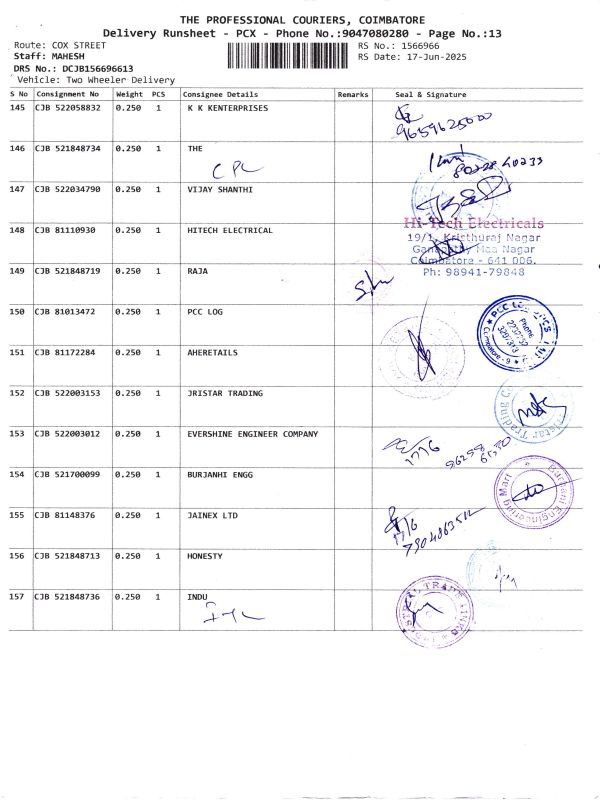 THE PROFESSIONAL COURIERS, COIMBATORE
Delivery Runsheet - PCX - Phone No.:9047080280 - Page No.:13
Route: COX STREET
RS No.: 1566966
Staff: MAHESH
RS Date: 17-Jun-2025
DRS No.: DCJB156696613
Vehicle: Two Wheeler Delivery
S No Consignment No Weight PCS Consignee Details Remarks Seal & Signature
145 CJB 522058832 0.250 1 K K KENTERPRISES
9659625000
146 CJB 521848734 0.250 1 THE
CPC
80228 40233
147 CJB 522034790 0.250 1 VIJAY SHANTHI
148 CJB 81110930 0.250 1 HITECH ELECTRICAL
Hi-Tech Electricals
19/1, Kristhuraj Nagar
Ganapathy Maa Nagar
Coimbatore - 641 006.
Ph: 98941-79848
149 CJB 521848719 0.250 1 RAJA
150 CJB 81013472 0.250 1 PCC LOG
Phone
151 CJB 81172284 0.250 1 AHERETAILS
152 CJB 522003153 0.250 1 JRISTAR TRADING
153 CJB 522003012 0.250 1 EVERSHINE ENGINEER COMPANY
17/6
154 CJB 521700099 0.250 1 BURJANHI ENGG
Burhani Engineering Mart
155 CJB 81148376 0.250 1 JAINEX LTD
17/6
156 CJB 521848713 0.250 1 HONESTY
157 CJB 521848736 0.250 1 INDU